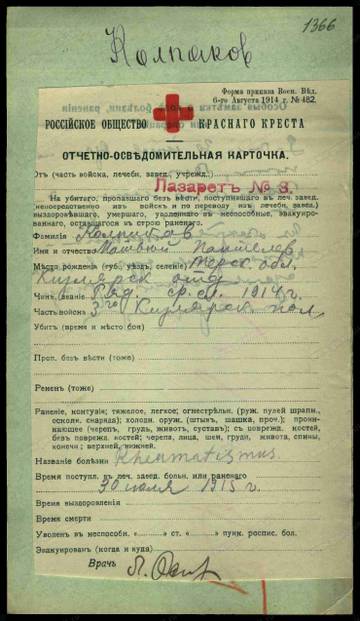 1366
Колпаков
Форма приказа Воен. Вѣд.
6-го Августа 1914 г. № 482.
РОССІЙСКОЕ ОБЩЕСТВО КРАСНАГО КРЕСТА
ОТЧЕТНО-ОСВѢДОМИТЕЛЬНАЯ КАРТОЧКА.
Отъ (часть войска, лечебн. завед., учрежд.)
Лазаретъ № 3.
На убитаго, пропавшаго безъ вѣсти, поступившаго въ леч. завед.
(непосредственно изъ войскъ и по переводу изъ лечебн. завед.)
выздоровѣвшаго, умершаго, уволеннаго въ неспособные, эвакуиро-
ваннаго, оставшагося въ строю раненаго.
Фамилія Колпаковъ
Имя и отчество Матвѣй
Мѣсто рожденія (губ., уѣзд., селеніе) Терск. обл.
Кизлярск. отд.
Чинъ, званіе 1914 г.
Часть войскъ 3го Кизлярск. пол
Убитъ (время и мѣсто боя)
Проп. безъ вѣсти (тоже)
Раненъ (тоже)
Раненіе, контузія; тяжелое, легкое; огнестрѣльн. (руж. пулей шрапн.,
осколк. снаряда); холодн. оруж. (штык., шашка, проч.); прони-
кающее (черепъ, грудь, животъ, суставъ); съ поврежд. костей,
безъ поврежд. костей; черепа, лица, шеи, груди, живота, спины,
конечн.; верхней, нижней.
Названіе болѣзни Rheumatismus
Время поступл. въ леч. завед. больн. или раненаго
30 іюля 1915 г.
Время выздоровленія
Время смерти
Уволенъ въ неспособн. « » ст. « » пунк. роспис. бол.
Эвакуированъ (когда и куда)
Врачъ